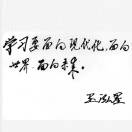 学习要面向现代化,面向
世界,面向未来。